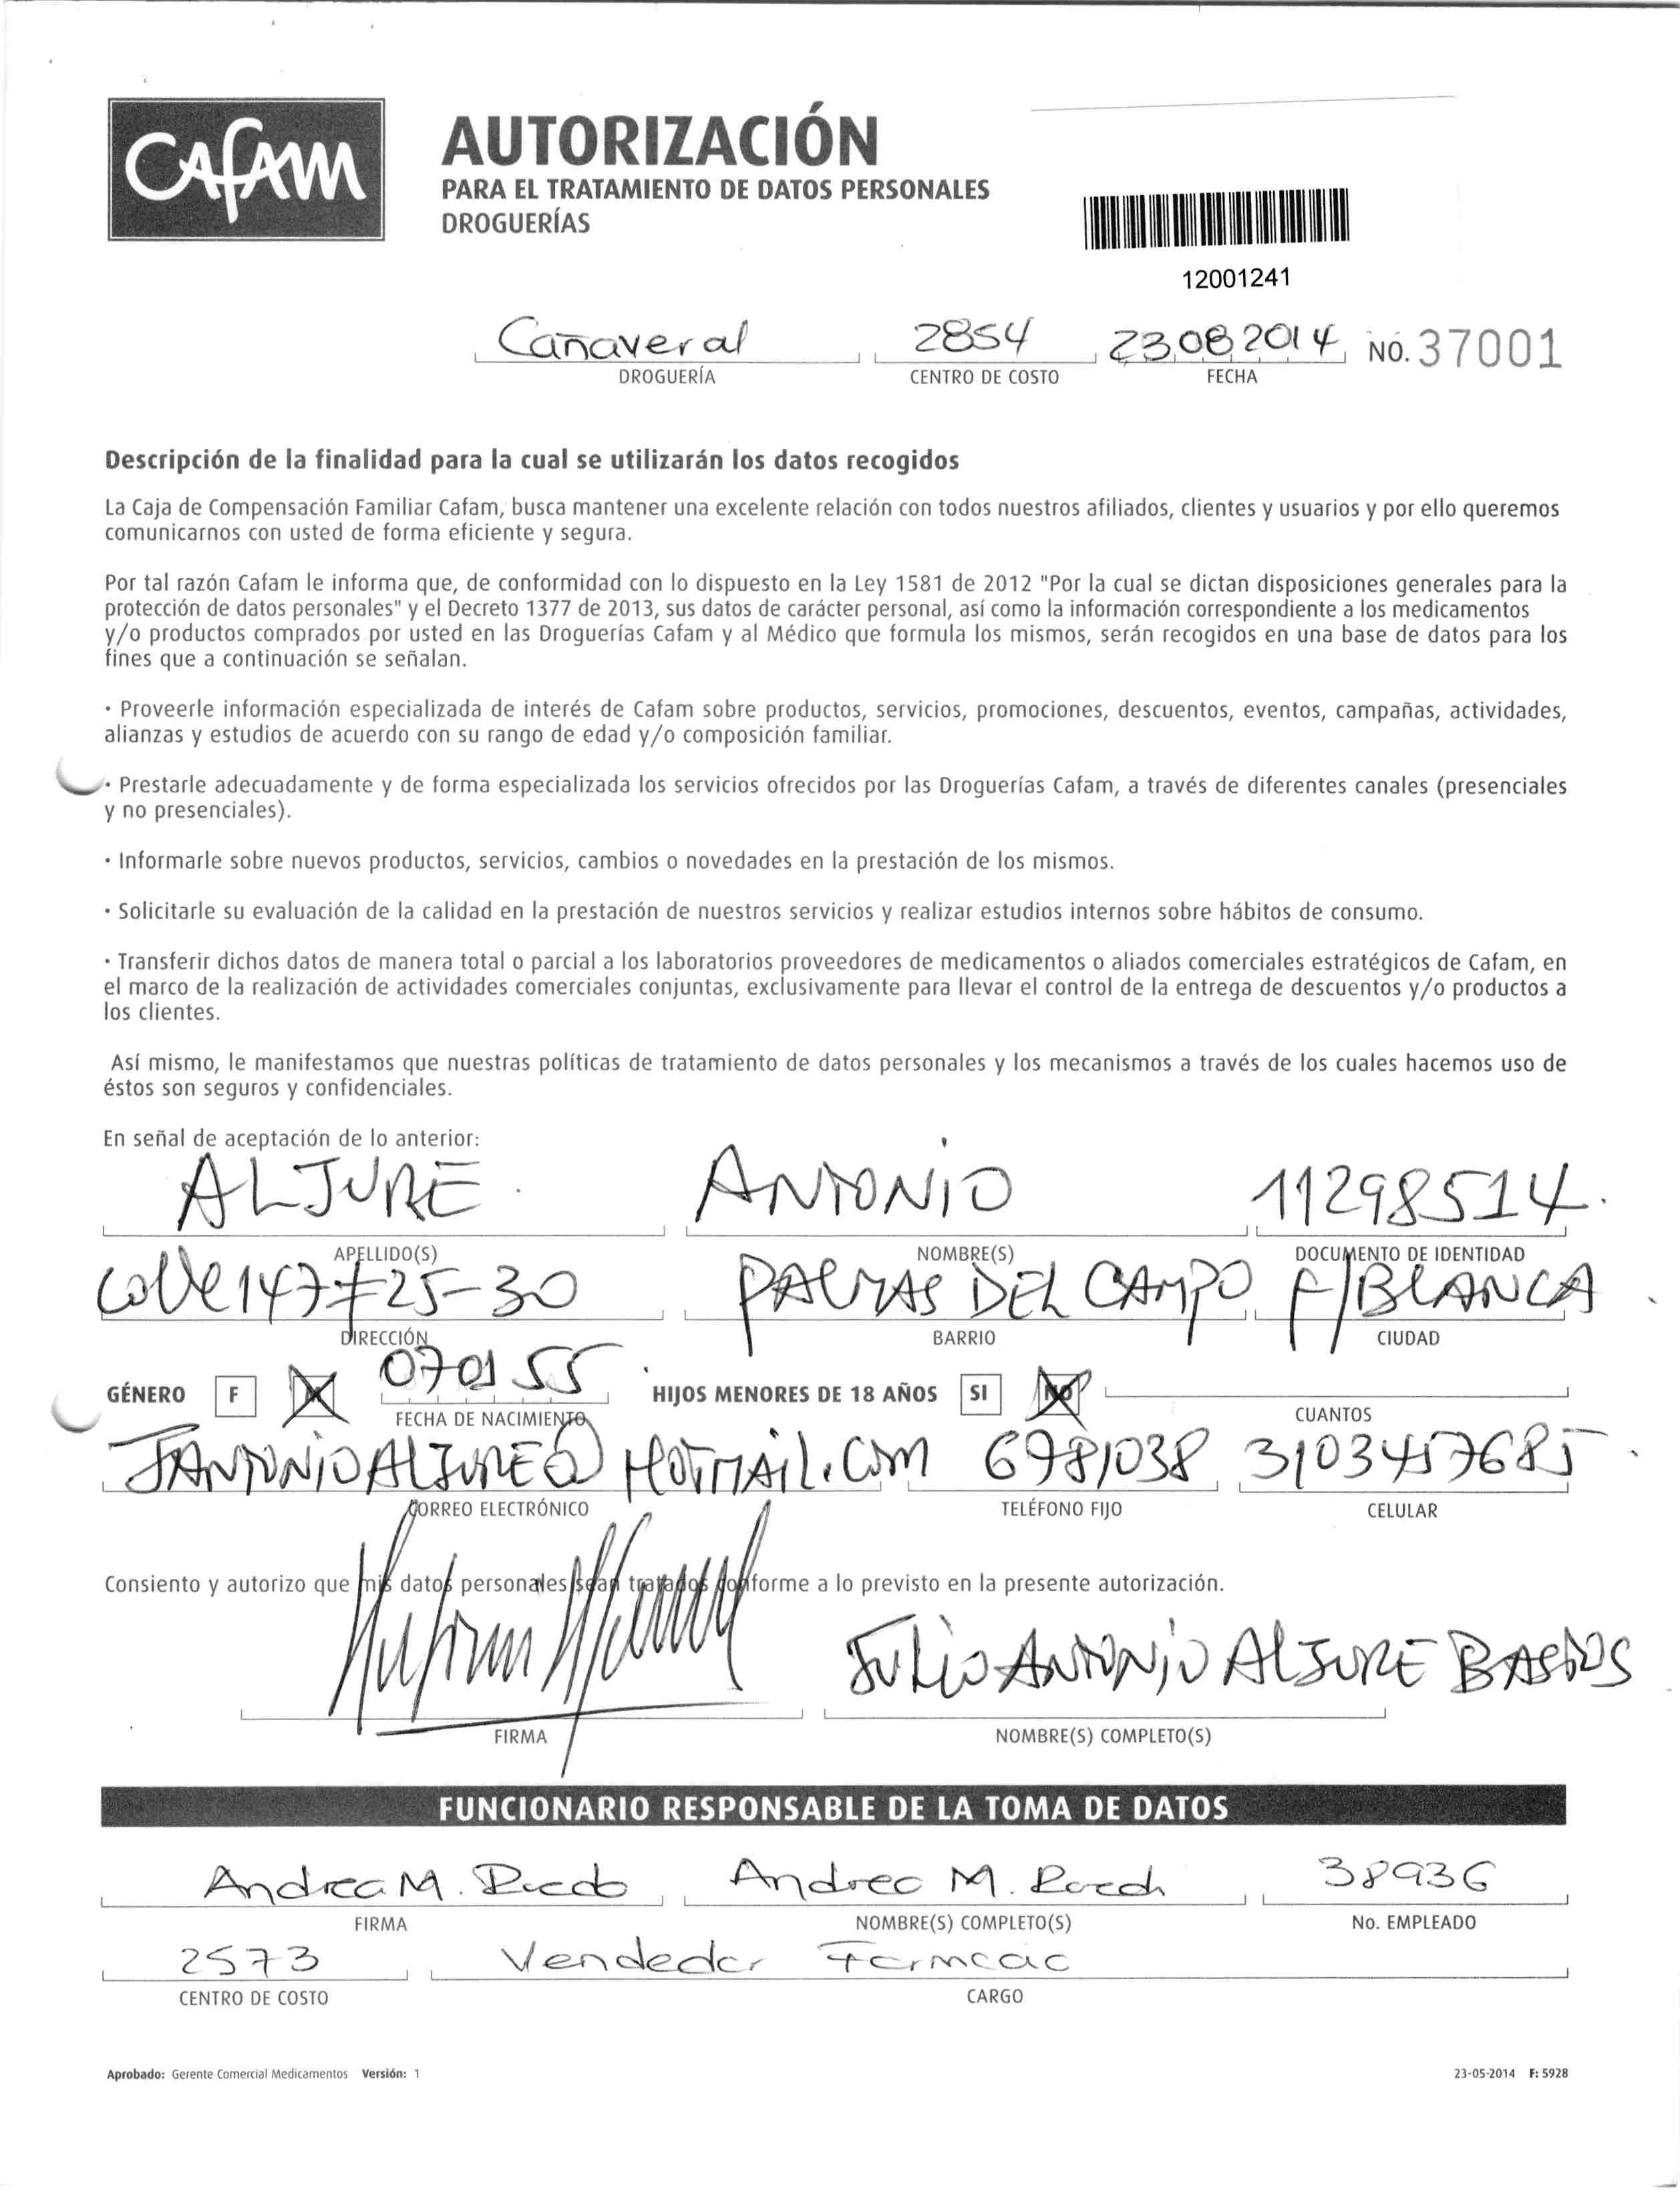 Cafam
AUTORIZACIÓN
PARA EL TRATAMIENTO DE DATOS PERSONALES
DROGUERÍAS
12001241
Cañaveral 2854 23 08 2014 NO. 37001
DROGUERÍA CENTRO DE COSTO FECHA
Descripción de la finalidad para la cual se utilizarán los datos recogidos
La Caja de Compensación Familiar Cafam, busca mantener una excelente relación con todos nuestros afiliados, clientes y usuarios y por ello queremos
comunicarnos con usted de forma eficiente y segura.
Por tal razón Cafam le informa que, de conformidad con lo dispuesto en la Ley 1581 de 2012 "Por la cual se dictan disposiciones generales para la
protección de datos personales" y el Decreto 1377 de 2013, sus datos de carácter personal, así como la información correspondiente a los medicamentos
y/o productos comprados por usted en las Droguerías Cafam y al Médico que formula los mismos, serán recogidos en una base de datos para los
fines que a continuación se señalan.
· Proveerle información especializada de interés de Cafam sobre productos, servicios, promociones, descuentos, eventos, campañas, actividades,
alianzas y estudios de acuerdo con su rango de edad y/o composición familiar.
· Prestarle adecuadamente y de forma especializada los servicios ofrecidos por las Droguerías Cafam, a través de diferentes canales (presenciales
y no presenciales).
· Informarle sobre nuevos productos, servicios, cambios o novedades en la prestación de los mismos.
· Solicitarle su evaluación de la calidad en la prestación de nuestros servicios y realizar estudios internos sobre hábitos de consumo.
· Transferir dichos datos de manera total o parcial a los laboratorios proveedores de medicamentos o aliados comerciales estratégicos de Cafam, en
el marco de la realización de actividades comerciales conjuntas, exclusivamente para llevar el control de la entrega de descuentos y/o productos a
los clientes.
Así mismo, le manifestamos que nuestras políticas de tratamiento de datos personales y los mecanismos a través de los cuales hacemos uso de
éstos son seguros y confidenciales.
En señal de aceptación de lo anterior:
ALJURE ANTONIO 11298514.
APELLIDO(S) NOMBRE(S) DOCUMENTO DE IDENTIDAD
Calle 147 # 25-30 PALMAS DEL CAMPO F/BLANCA
DIRECCIÓN BARRIO CIUDAD
070155
GÉNERO F M HIJOS MENORES DE 18 AÑOS SI NO
FECHA DE NACIMIENTO CUANTOS
JANTONIOALJURE@HOTMAIL.COM 6781038 3103457685
CORREO ELECTRÓNICO TELÉFONO FIJO CELULAR
Consiento y autorizo que mis datos personales sean tratados conforme a lo previsto en la presente autorización.
JULIO ANTONIO ALJURE BASTOS
FIRMA NOMBRE(S) COMPLETO(S)
FUNCIONARIO RESPONSABLE DE LA TOMA DE DATOS
Andrea M. Andrea M. 38936
FIRMA NOMBRE(S) COMPLETO(S) No. EMPLEADO
2573 Vendedor
CENTRO DE COSTO CARGO
Aprobado: Gerente Comercial Medicamentos Versión: 1 23-05-2014 F: 5928